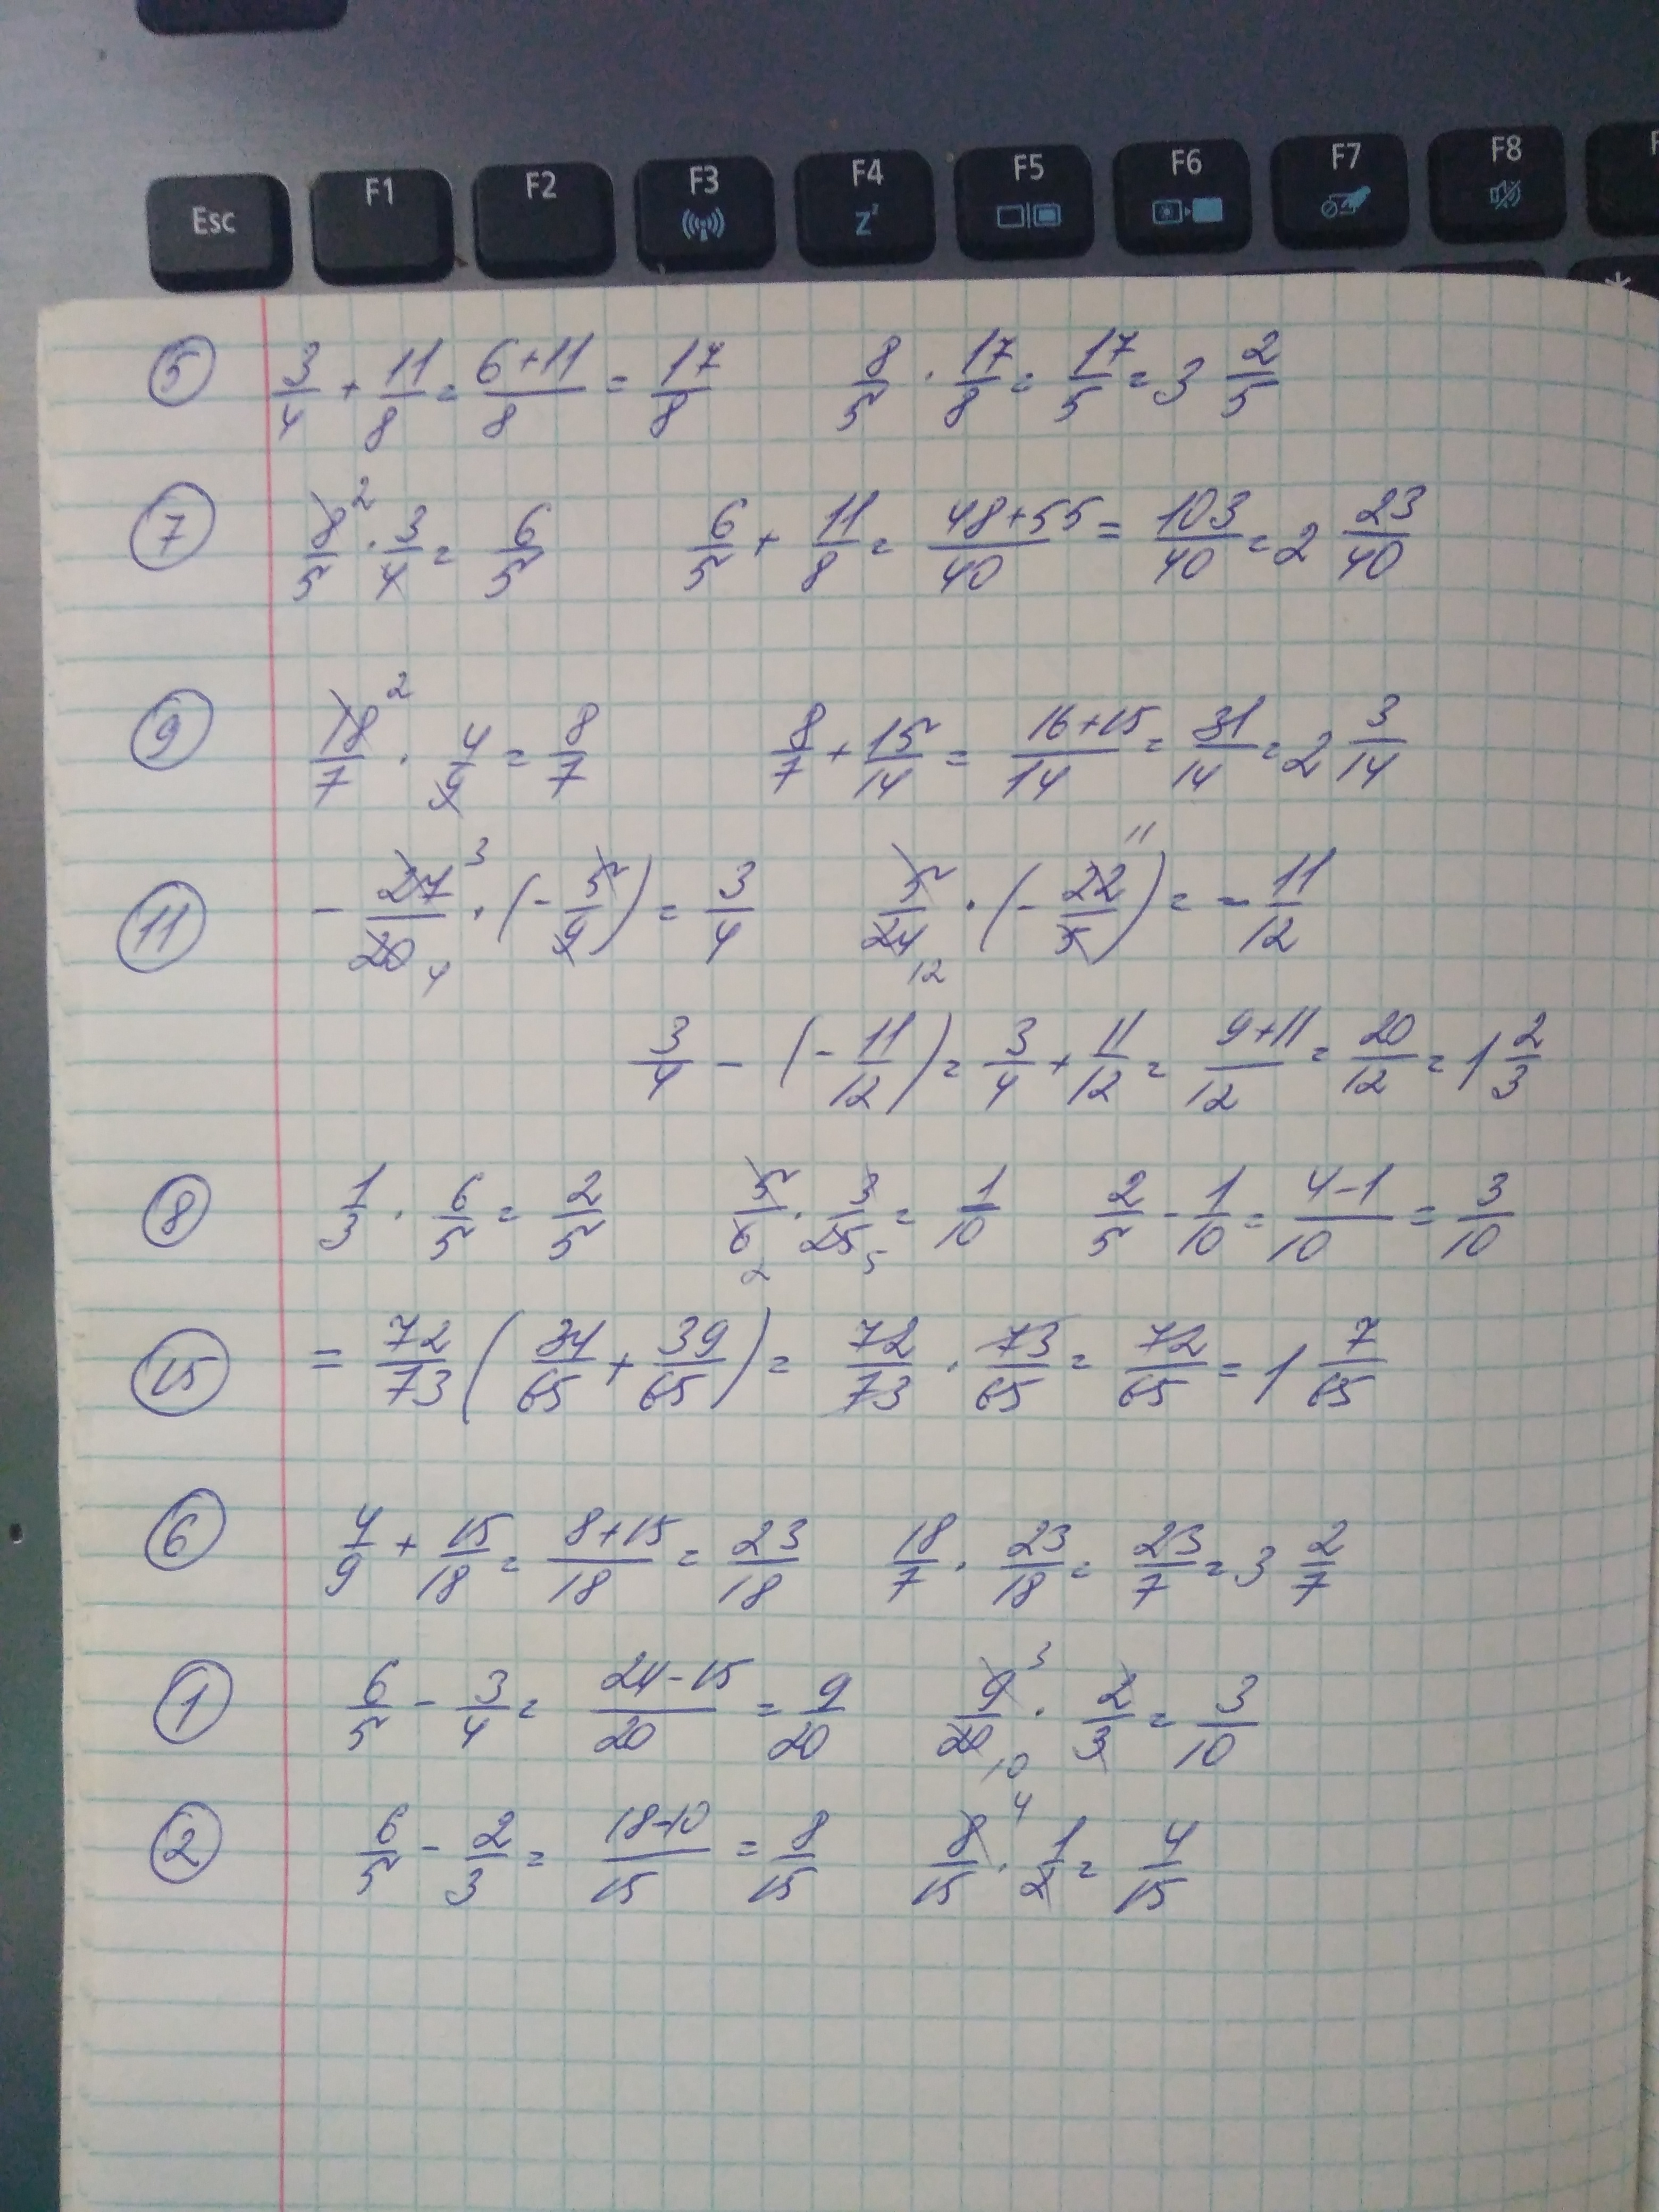 Esc F1 F2 F3 F4 Zz F5 F6 F7 F8
*
5 3/4 + 11/8 = (6+11)/8 = 17/8 8/5 · 17/8 = 17/5 = 3 2/5
7 8/5 2 · 3/4 = 6/5 6/5 + 11/8 = (48+55)/40 = 103/40 = 2 23/40
9 18/7 2 · 4/9 = 8/7 8/7 + 15/14 = (16+15)/14 = 31/14 = 2 3/14
11 - 27/20 3 4 · (- 5/9) = 3/4 5/24 12 · (- 22/5) 11 = - 11/12
3/4 - (- 11/12) = 3/4 + 11/12 = (9+11)/12 = 20/12 = 1 2/3
8 1/3 · 6/5 = 2/5 5/6 2 · 3/25 5 = 1/10 2/5 - 1/10 = (4-1)/10 = 3/10
15 = 72/73 (34/65 + 39/65) = 72/73 · 73/65 = 72/65 = 1 7/65
6 4/9 + 15/18 = (8+15)/18 = 23/18 18/7 · 23/18 = 23/7 = 3 2/7
1 6/5 - 3/4 = (24-15)/20 = 9/20 9/20 3 10 · 2/3 = 3/10
2 6/5 - 2/3 = (18-10)/15 = 8/15 8/15 4 · 1/2 = 4/15